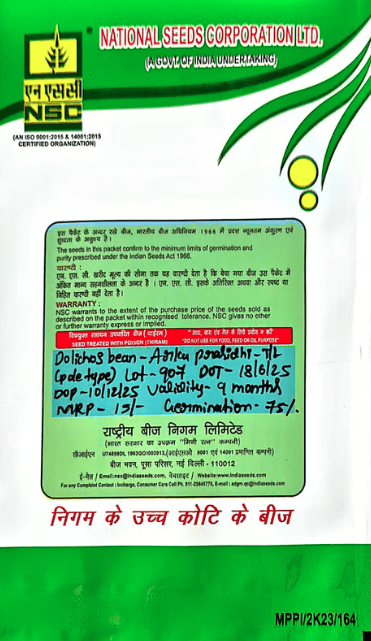 NATIONAL SEEDS CORPORATION LTD.
(A GOVT. OF INDIA UNDERTAKING)
एन एस सी
NSC
(AN ISO 9001:2015 & 14001:2015
CERTIFIED ORGANIZATION)
इस पैकेट के अन्दर रखे बीज, भारतीय बीज अधिनियम 1966 में प्रदत्त न्यूनतम अंकुरण एवं
शुद्धता के अनुरूप है।
The seeds in this packet confirm to the minimum limits of germination and
purity prescribed under the Indian Seeds Act 1966.
वारण्टी :
एन. एस. सी. खरीद मूल्य की सीमा तक यह वारण्टी देता है कि बेचा गया बीज उस पैकेट में
अंकित मान्य सहनशीलता के अन्दर है। एन. एस. सी. इसके अतिरिक्त अथवा और स्पष्ट या
निहित वारण्टी नहीं देता है।
WARRANTY :
NSC warrants to the extent of the purchase price of the seeds sold as
described on the packet within recognised tolerance. NSC gives no other
or further warranty express or implied.
विषयुक्त रसायन उपचारित बीज (थाईरम)
SEED TREATED WITH POISON (THIRAM)
" खाद्य, चारा एवं तेल के लिये प्रयोग न करें"
"DO NOT USE FOR FOOD, FEED OR OIL PURPOSE"
Dolichos bean - Arka T/L
(pole type) Lot - 907 DOT - 18/6/25
DOP - 10/12/25 Validity - 9 months
MRP - Germination - 75%.
राष्ट्रीय बीज निगम लिमिटेड
(भारत सरकार का उपक्रम "मिनी रत्न" कम्पनी)
सीआईएन (आईएसओ 9001 एवं 14001 प्रमाणित कम्पनी)
बीज भवन, पूसा परिसर, नई दिल्ली - 110012
ई-मेल / Email:nsc@indiaseeds.com, वेबसाइट / Website:www.indiaseeds.com
For any Complaint Contact : Incharge, Consumer Care Cell Ph. 011-25845770, E-mail :
निगम के उच्च कोटि के बीज
MPPI/2K23/164